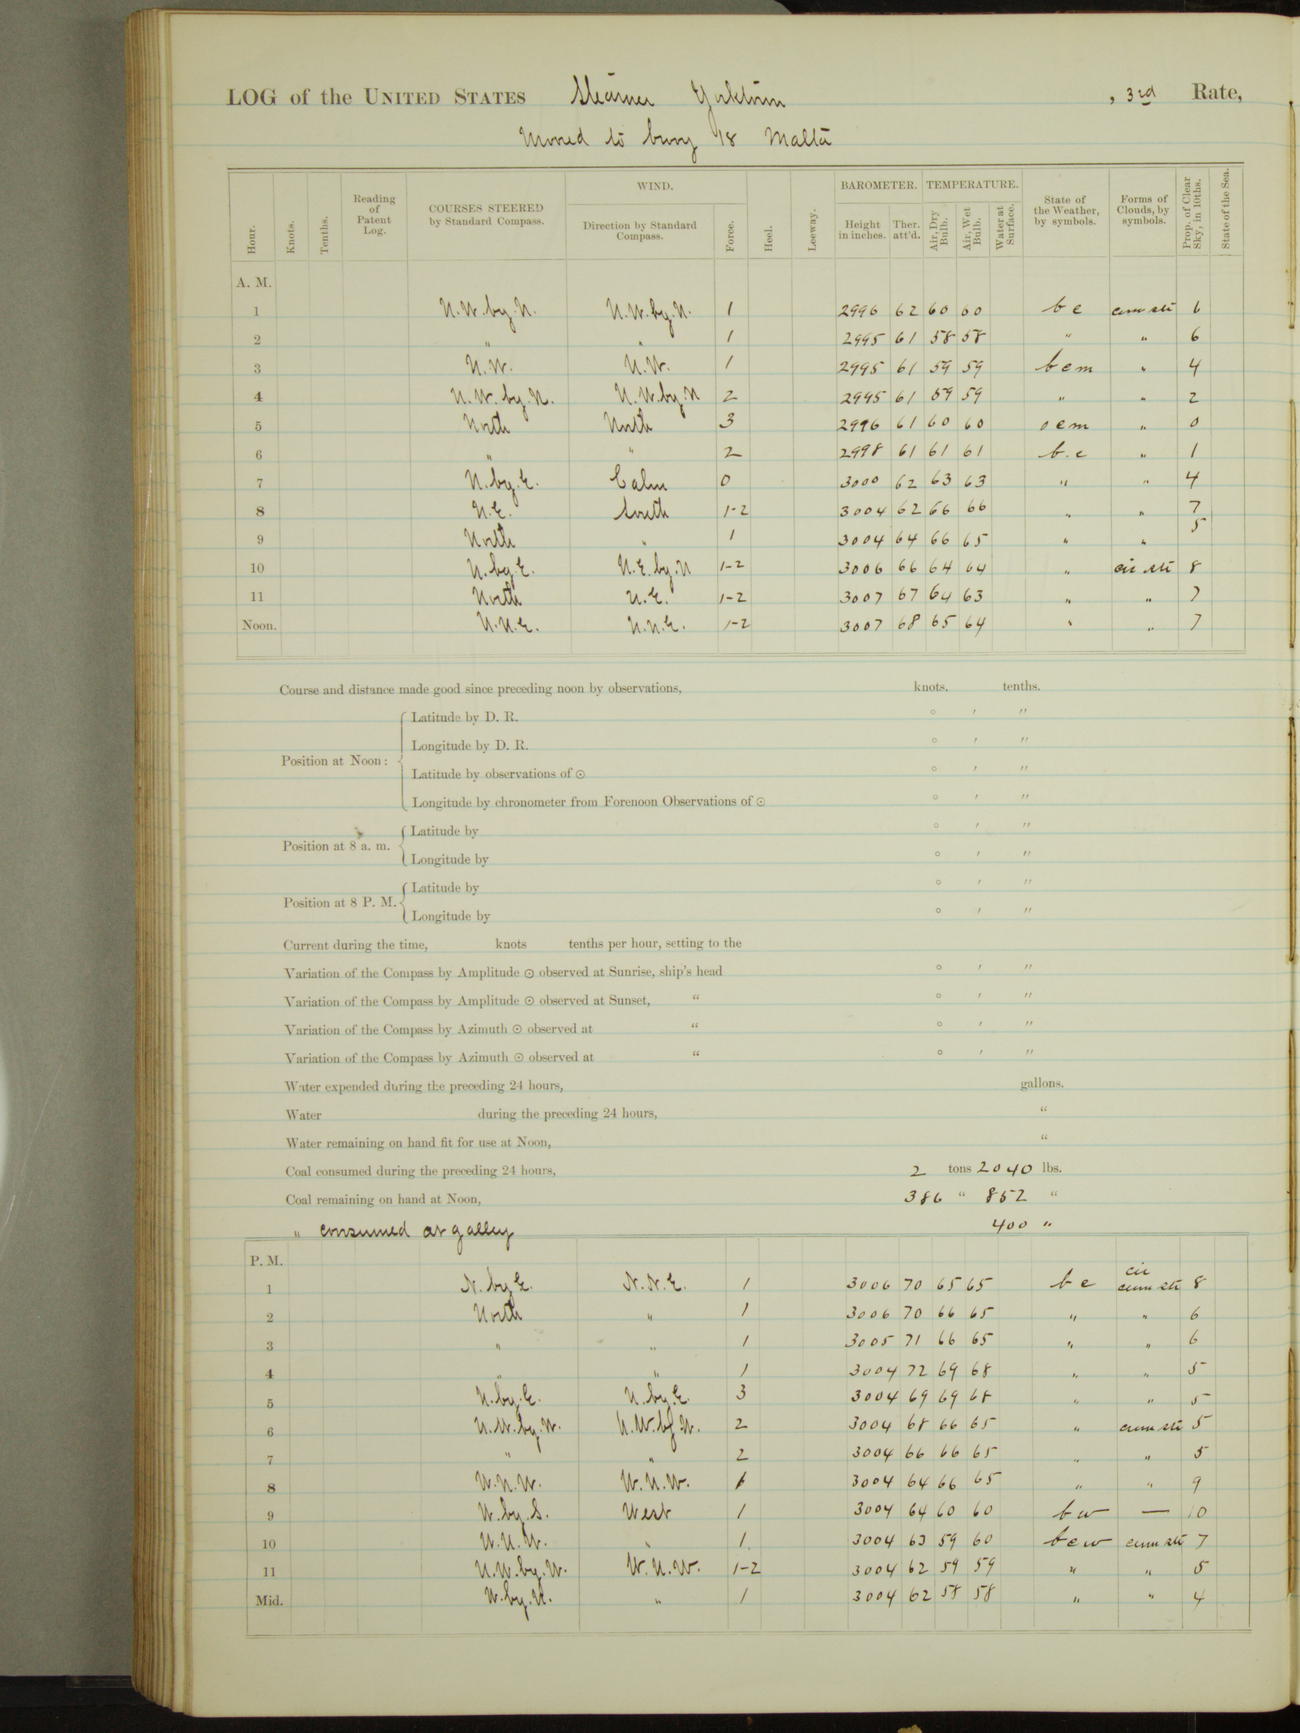 LOG of the UNITED STATES Steamer Yorktown , 3rd Rate,
Moored to buoy 18 Malta
Hour. Knots. Tenths. Reading of Patent Log. COURSES STEERED by Standard Compass. WIND. Direction by Standard Compass. Force. Heel. Leeway. BAROMETER. Height in inches. Ther. att'd. TEMPERATURE. Air, Dry Bulb. Air, Wet Bulb. Water at Surface. State of the Weather, by symbols. Forms of Clouds, by symbols. Prop. of Clear Sky, in 10ths. State of the Sea.
A. M.
1 N.W. by N. N.W. by N. 1 2996 62 60 60 b c cum str 6
2 " " 1 2995 61 58 58 " " 6
3 N.W. N.W. 1 2995 61 59 59 b c m " 4
4 N.W. by N. N.W. by N 2 2995 61 59 59 " " 2
5 North North 3 2996 61 60 60 o c m " 0
6 " " 2 2998 61 61 61 b.c " 1
7 N. by E. Calm 0 3000 62 63 63 " " 4
8 N.E. South 1-2 3004 62 66 66 " " 7
9 North " 1 3004 64 66 65 " " 5
10 N. by E. N.E. by N 1-2 3006 66 64 64 " cir str 8
11 North N.E. 1-2 3007 67 64 63 " " 7
Noon. N.N.E. N.N.E. 1-2 3007 68 65 64 " " 7
Course and distance made good since preceding noon by observations, knots. tenths.
Position at Noon:
Latitude by D. R. ° ' "
Longitude by D. R. ° ' "
Latitude by observations of ☉ ° ' "
Longitude by chronometer from Forenoon Observations of ☉ ° ' "
Position at 8 a. m.
Latitude by ° ' "
Longitude by ° ' "
Position at 8 P. M.
Latitude by ° ' "
Longitude by ° ' "
Current during the time, knots tenths per hour, setting to the
Variation of the Compass by Amplitude ☉ observed at Sunrise, ship's head ° ' "
Variation of the Compass by Amplitude ☉ observed at Sunset, " ° ' "
Variation of the Compass by Azimuth ☉ observed at " ° ' "
Variation of the Compass by Azimuth ☉ observed at " ° ' "
Water expended during the preceding 24 hours, gallons.
Water during the preceding 24 hours, "
Water remaining on hand fit for use at Noon, "
Coal consumed during the preceding 24 hours, 2 tons 2040 lbs.
Coal remaining on hand at Noon, 386 " 852 "
" consumed at galley 400 "
P. M.
1 N. by E. N.N.E. 1 3006 70 65 65 b c cir cum str 8
2 North " 1 3006 70 66 65 " " 6
3 " " 1 3005 71 66 65 " " 6
4 " " 1 3004 72 69 68 " " 5
5 N. by E. N. by E. 3 3004 69 69 68 " " 5
6 N.W. by W. N.W. by N. 2 3004 68 66 65 " cum str 5
7 " " 2 3004 66 66 65 " " 5
8 W.N.W. W.N.W. 1 3004 64 66 65 " " 9
9 W. by S. West 1 3004 64 60 60 b w — 10
10 W.N.W. " 1 3004 63 59 60 b c w cum str 7
11 N.W. by W. W.N.W. 1-2 3004 62 59 59 " " 5
Mid. W. by N. " 1 3004 62 58 58 " " 4